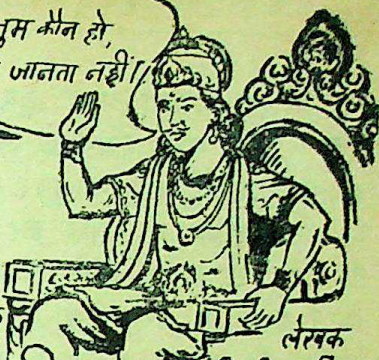 तुम कौन हो,
जानता नहीं!
लेखक